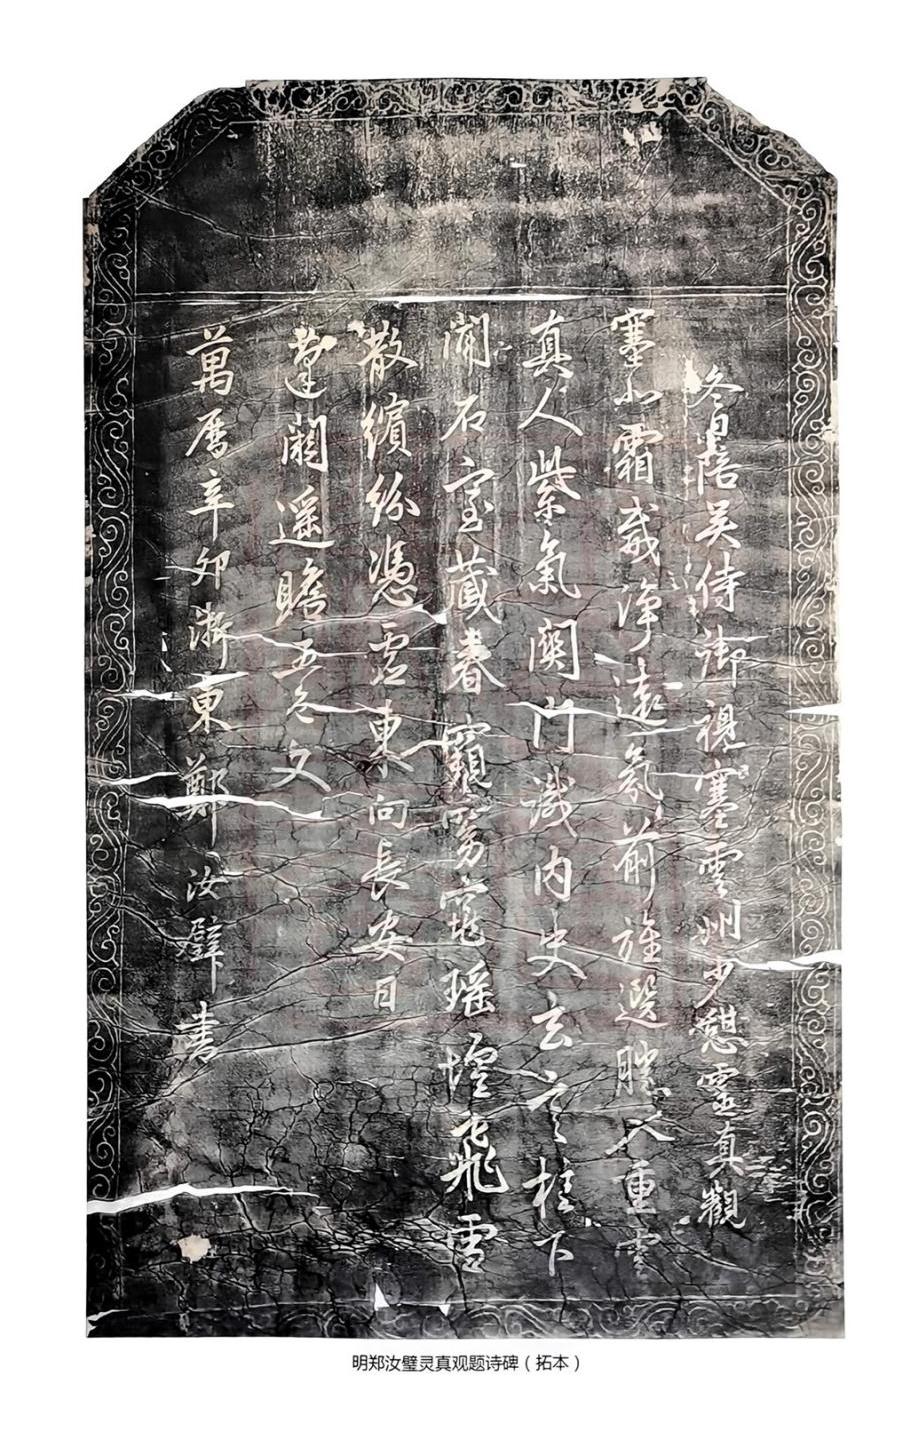 冬日陪吴侍御視塞雲州少憩靈真觀
塞北霜威淨遠氛前旌選勝入重雲
真人紫氣關門識内史玄言柱下
聞石室藏書窺窈窕瑶壇飛雪
散繽紛憑虚東向長安日
蓬闕遥瞻五色文
萬厯辛卯浙東鄭汝璧書
明郑汝璧灵真观题诗碑（拓本）